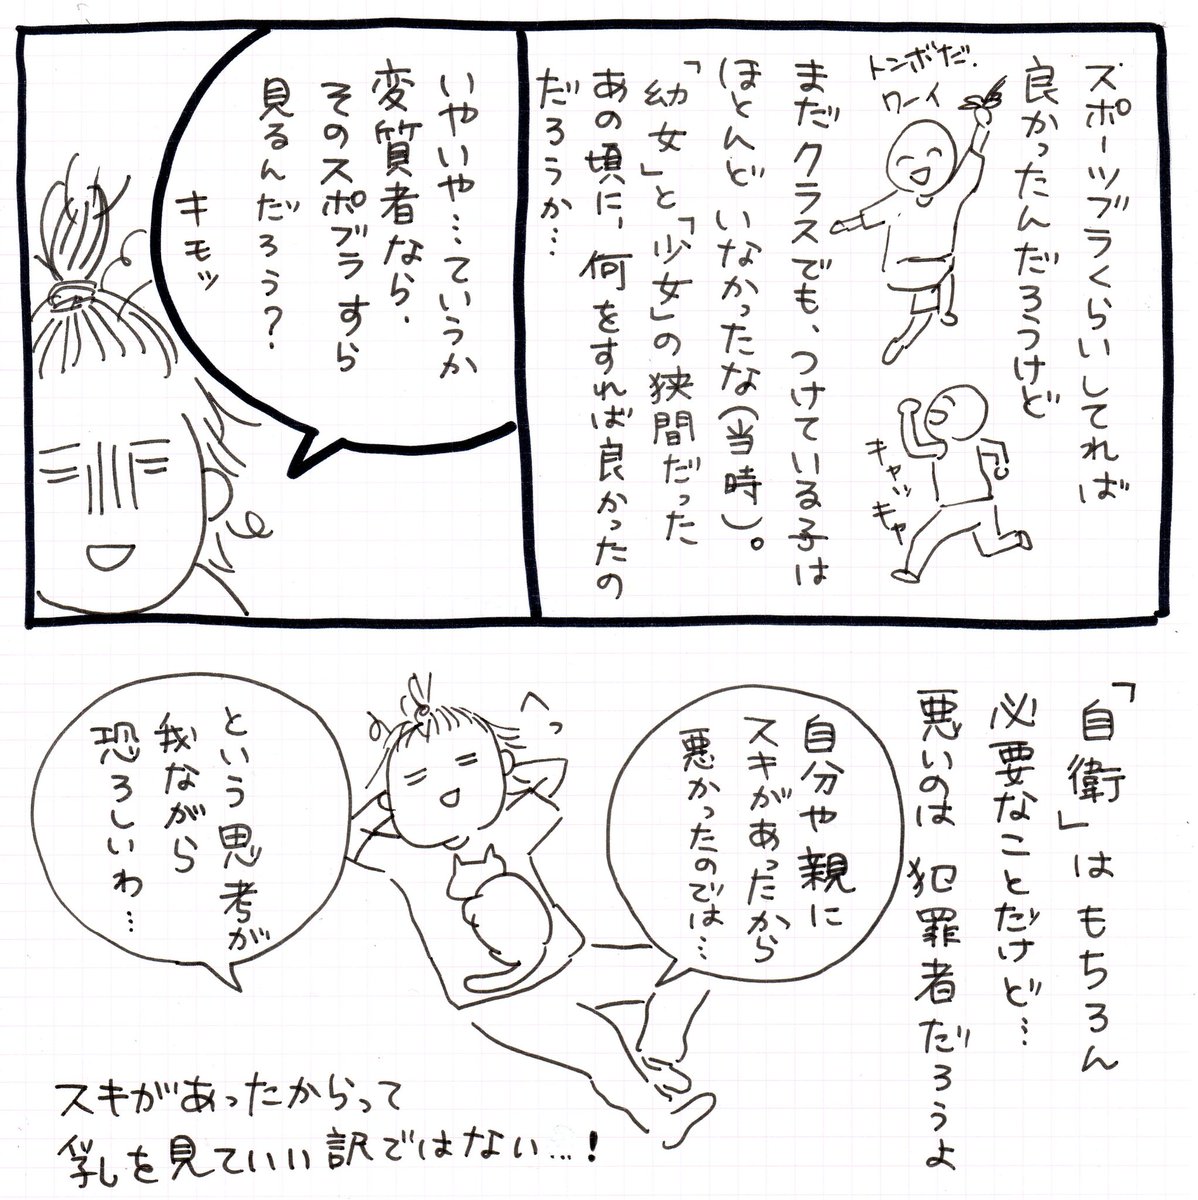 スポーツブラくらいしてれば
良かったんだろうけど
トンボだ.
ワーイ
キャッ
キャ
まだクラスでも、つけている子は
ほとんどいなかったな(当時)。
「幼女」と「少女」の狭間だった
あの頃に、何をすれば良かったの
だろうか…
いやいや…ていうか
変質者なら、
そのスポブラすら
見るんだろう?
キモッ
「自衛」はもちろん
必要なことだけど…
悪いのは犯罪者だろうよ
自分や親に
スキがあったから
悪かったのでは…
へっ
という思考が
我ながら
恐ろしいわ…
スキがあったからって
乳を見ていい訳ではない…!